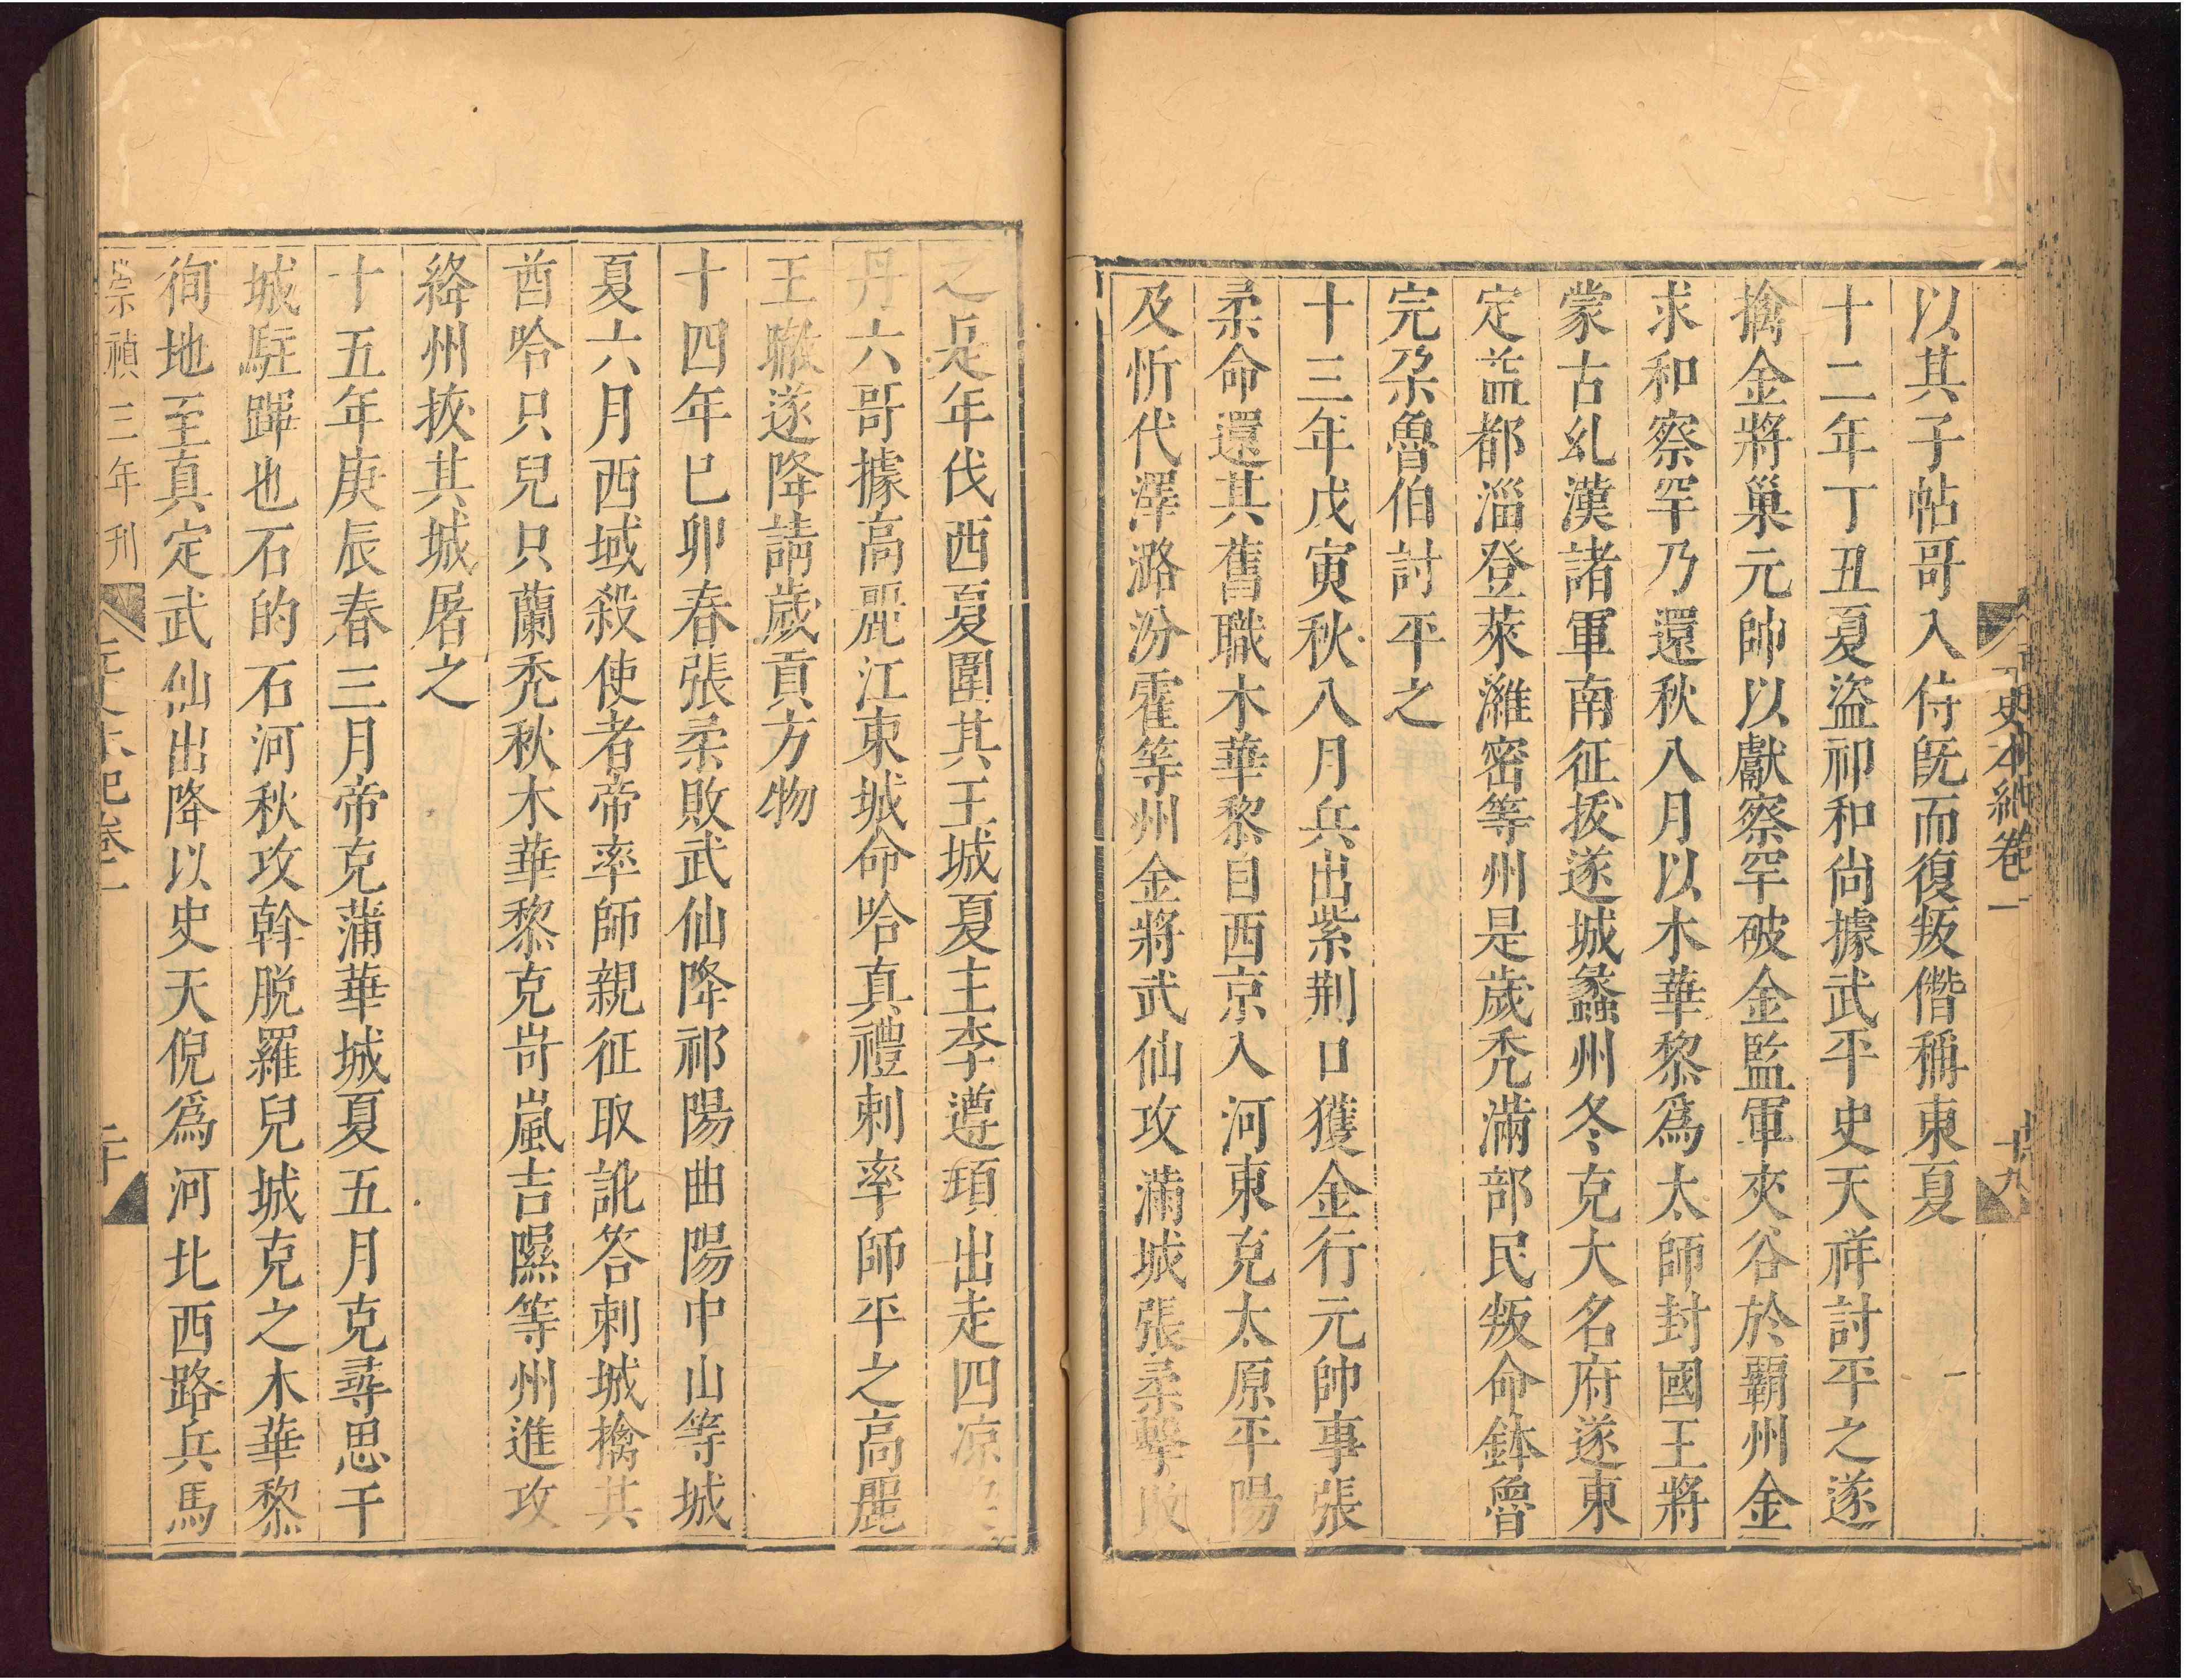 史本紀卷一
十九
以其子帖哥入侍旣而復叛僭稱東夏
十二年丁丑夏盜祁和尚據武平史天祥討平之遂
擒金將巢元帥以獻察罕破金監軍夾谷於霸州金
求和察罕乃還秋八月以木華黎爲太師封國王將
蒙古乣漢諸軍南征拔遂城蠡州冬克大名府遂東
定益都淄登萊濰密等州是歲禿滿部民叛命鉢魯
完朶魯伯討平之
十三年戊寅秋八月兵出紫荆口獲金行元帥事張
柔命還其舊職木華黎自西京入河東克太原平陽
及忻代澤潞汾霍等州金將武仙攻滿城張柔擊敗
之是年伐西夏圍其王城夏主李遵頊出走四凉
丹六哥據高麗江東城命哈真禮剌率師平之高麗
王㬚遂降請歲貢方物
十四年巳卯春張柔敗武仙降祁陽曲陽中山等城
夏六月西域殺使者帝率師親征取訛答剌城擒其
酋哈只兒只蘭禿秋木華黎克岢嵐吉隰等州進攻
絳州拔其城屠之
十五年庚辰春三月帝克蒲華城夏五月克尋思干
城駐蹕也石的石河秋攻斡脫羅兒城克之木華黎
徇地至真定武仙出降以史天倪爲河北西路兵馬
崇禎三年刊
卷一
二十